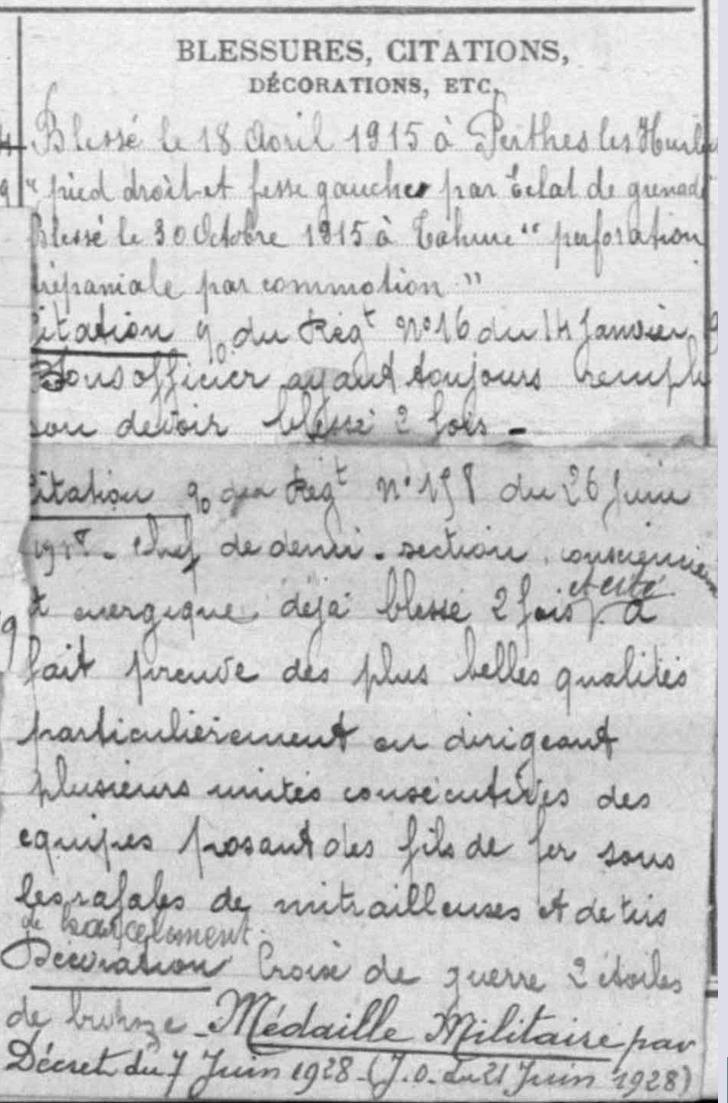 BLESSURES, CITATIONS,
DÉCORATIONS, ETC.
Blessé le 18 Avril 1915 à Perthes les Hurlu
" pied droit et fesse gauche par Eclat de grenade
Blessé le 30 Octobre 1915 à Tahure " perforation
par commotion "
itation du Régt N° 16 du 14 Janvier
Sous officier ayant toujours rempli
son devoir blessé 2 fois -
itation du Régt N° 158 du 26 Juin
Chef de demi-section conscien
t energique déjà blessé 2 fois a
fait preuve des plus belles qualités
particulièrement en dirigeant
plusieurs unités consécutives des
equipes posant des fils de fer sous
les rafales de mitrailleuses et de tirs
de harcelement.
Décoration Croix de guerre 2 étoiles
de bronze - Médaille Militaire par
Décret du 7 Juin 1928 - (J.O. du 21 Juin 1928)